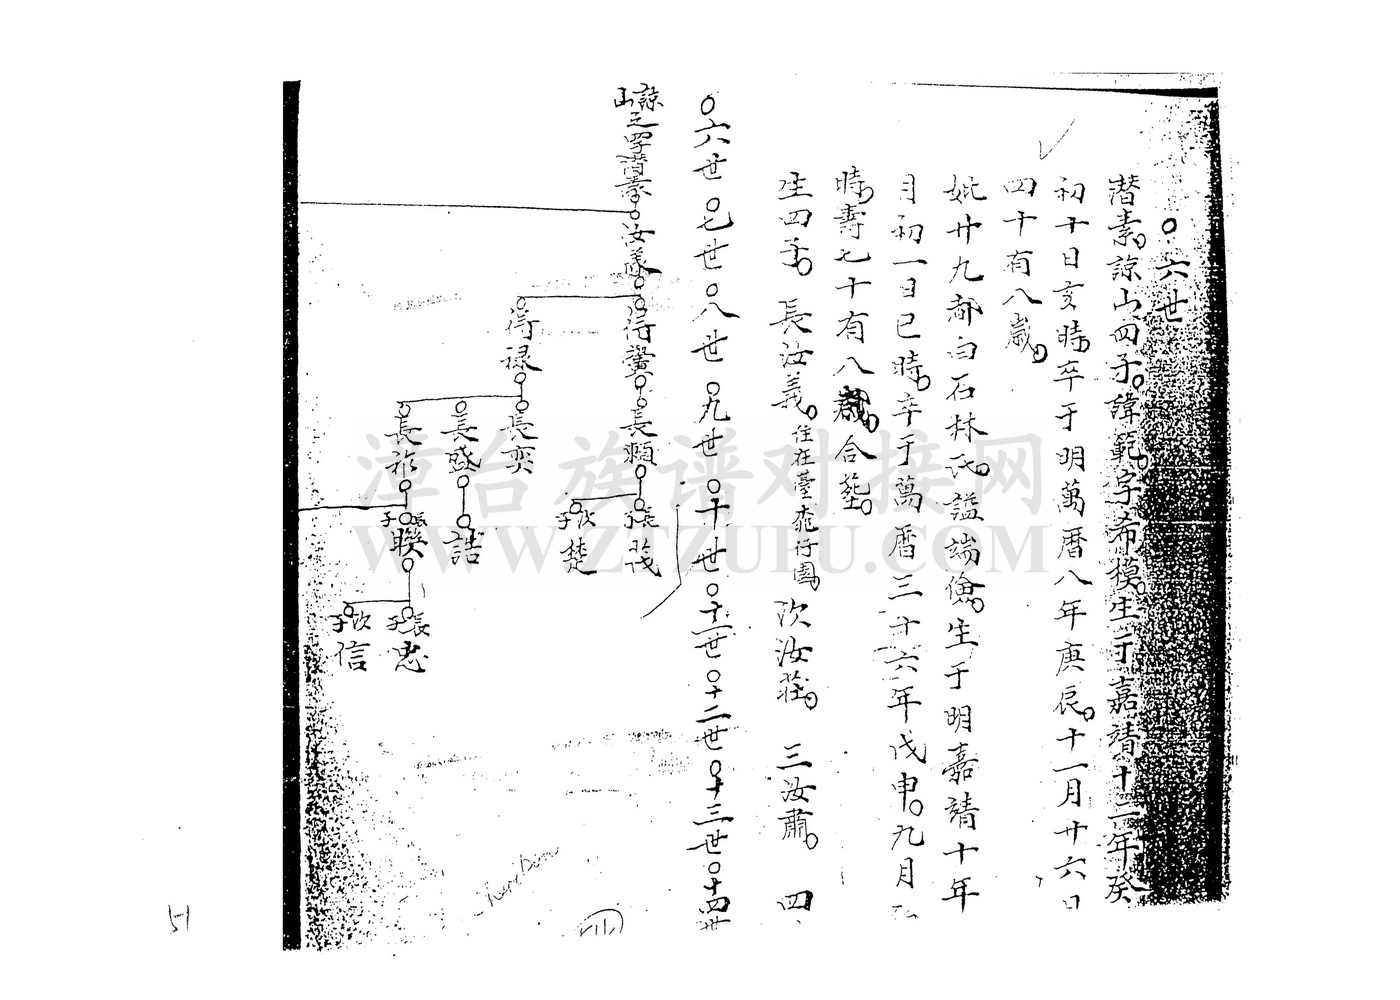 六世
潜素。諒山四子。諱範。字希模。生于嘉靖十二年癸
初十日亥時。卒于明萬曆八年庚辰。十一月廿六日
四十有八歲。
妣廿九都白石林氏。謚端儉。生于明嘉靖十年
月初一日巳時。卒于萬曆三十六年戊申。九月
時。壽七十有八歲。合塟。
生四子。長汝義。住在臺 行園。次汝莊。三汝肅。四
六世 七世 八世 九世 十世 十一世 十二世 十三世 十四世
諒山之四子潜素
汝義
得
得禄
長
長奕
長盛
長祚
長子 茂
次子 楚
誥
長子 聯
長子 忠
次子 信
漳台族谱对接网
WWW.ZTZUPU.COM
51